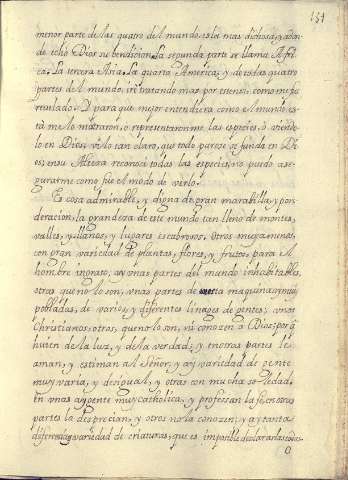 151
menor parte de las quatro del mundo, es la mas dichosa, y adon
de echò Dios su bendicion. La segunda parte se llama Afri
ca. La tercera Asia. La quarta America; y de estas quatro
partes del mundo, iré tratando mas por
Y para que mejor entendiera como el mundo es
tà me lo mostraron, o representaronme las especies, ò viendo
lo en Dios, vilo tan claro, que todo parece se fundà en Di
os; en su Alteza reconocì todas las especies; no puedo ase-
gurarme como fue el modo de verlo.
Es cosa admirable, y digna de gran marabilla, y pon-
deracion, la grandeza de este mundo tan lleno de montes,
valles, y llanos, y lugares escabrosos, otros muy amenos,
con gran variedad de plantas, flores, y frutos, para el
hombre ingrato, ay unas partes del mundo inhabitables,
otras que no lo son, unas partes de esta maquina muy
pobladas, de varios, y diferentes linages de gentes; unos
Christianos, otros, que no lo son, ni conozen a Dios; por q
huien de la luz, y de la verdad; y en otras partes le
aman, y estiman al Señor, y ay variedad de gente
muy varia, y desigual, y otras con mucha soledad,
en unas ay gente muy catholica, y professan la fe, en otras
partes la desprecian, y otros no la conozen; y ay tanta
diferencia, y variedad de criaturas, que es imposible declararlas todas.